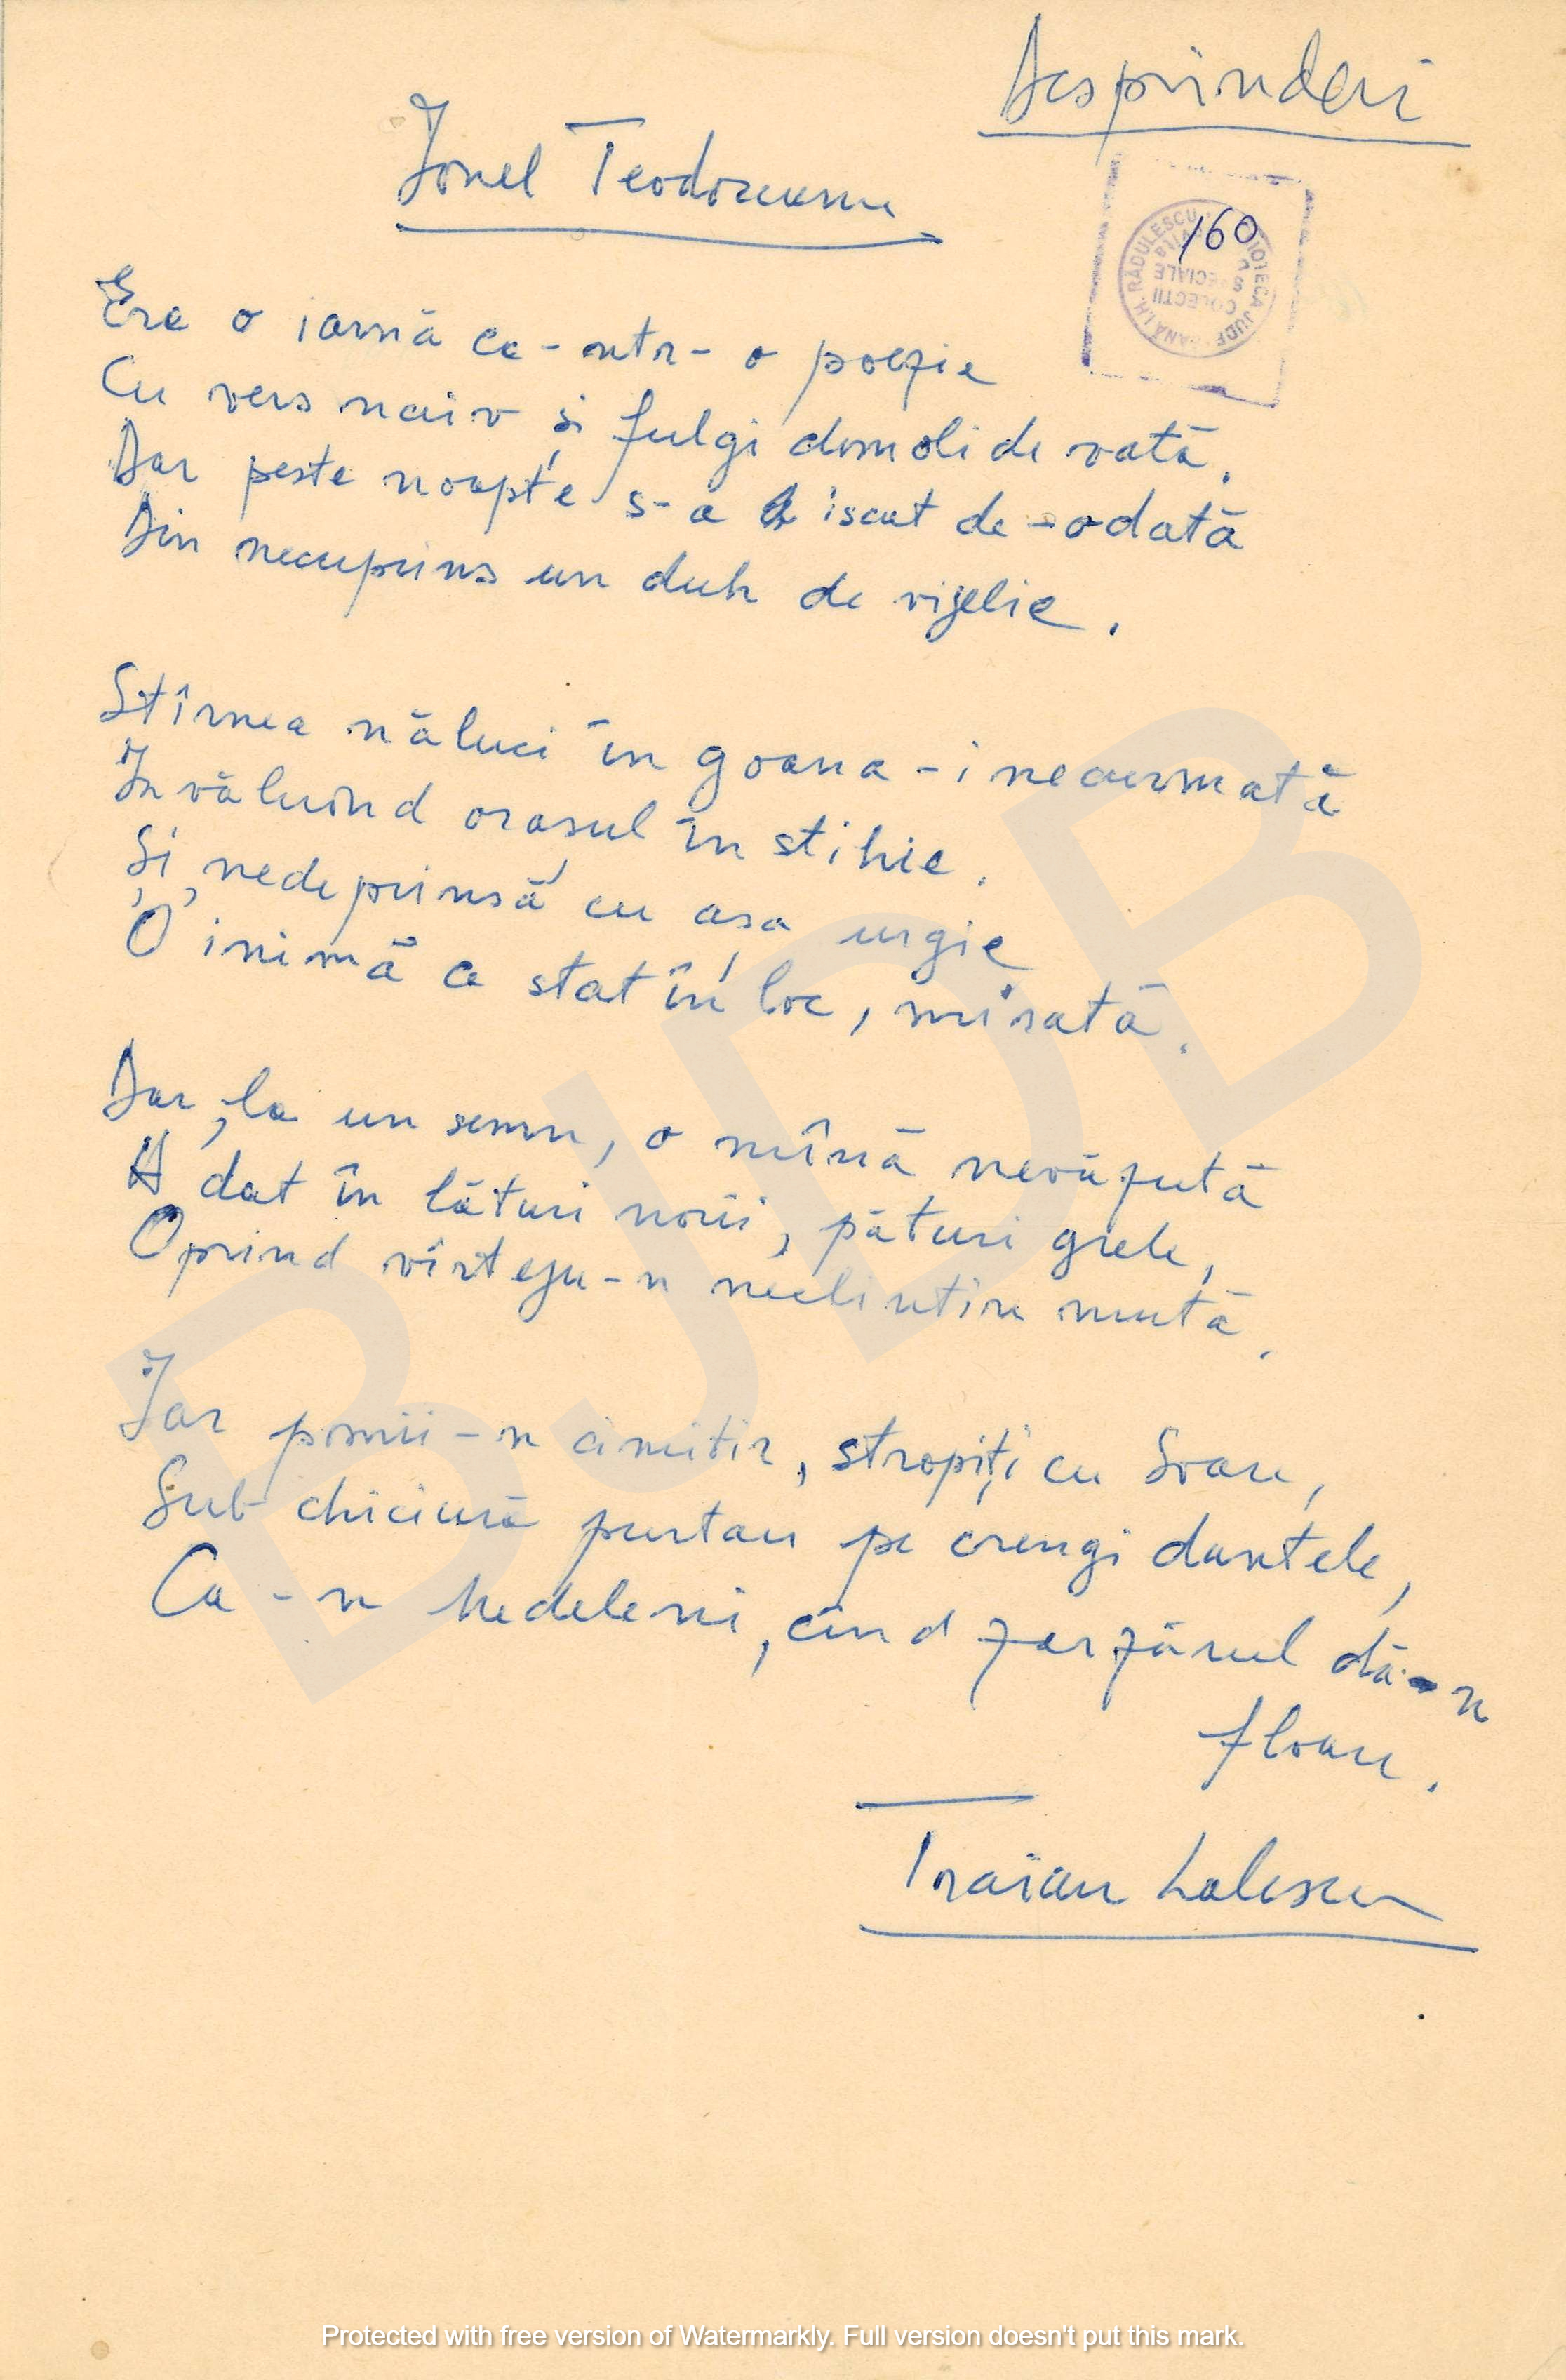 Desprinderi
Ionel Teodoreanu
160
Era o iarnă ca-ntr-o poezie
Cu vers naiv și fulgi domoli de vată.
Dar peste noapte s-a iscat de-odată
Din necuprins un duh de vijelie.
Stîrnea năluci în goana-i necurmată
Învăluind orașul în stihie.
Și, nedeprinsă cu așa urgie
O inimă a stat în loc, mirată.
Dar, la un semn, o mînă nevăzută
A dat în lături norii, pături grele,
Oprind vîrteju-n neclintire mută.
Iar pomii-n cimitir, stropiți cu Soare,
Sub chiciură purtau pe crengi dantele,
Ca-n Medeleni, cînd zarzărul dă-n
floare.
Traian Lalescu
BJDB
Protected with free version of Watermarkly. Full version doesn't put this mark.